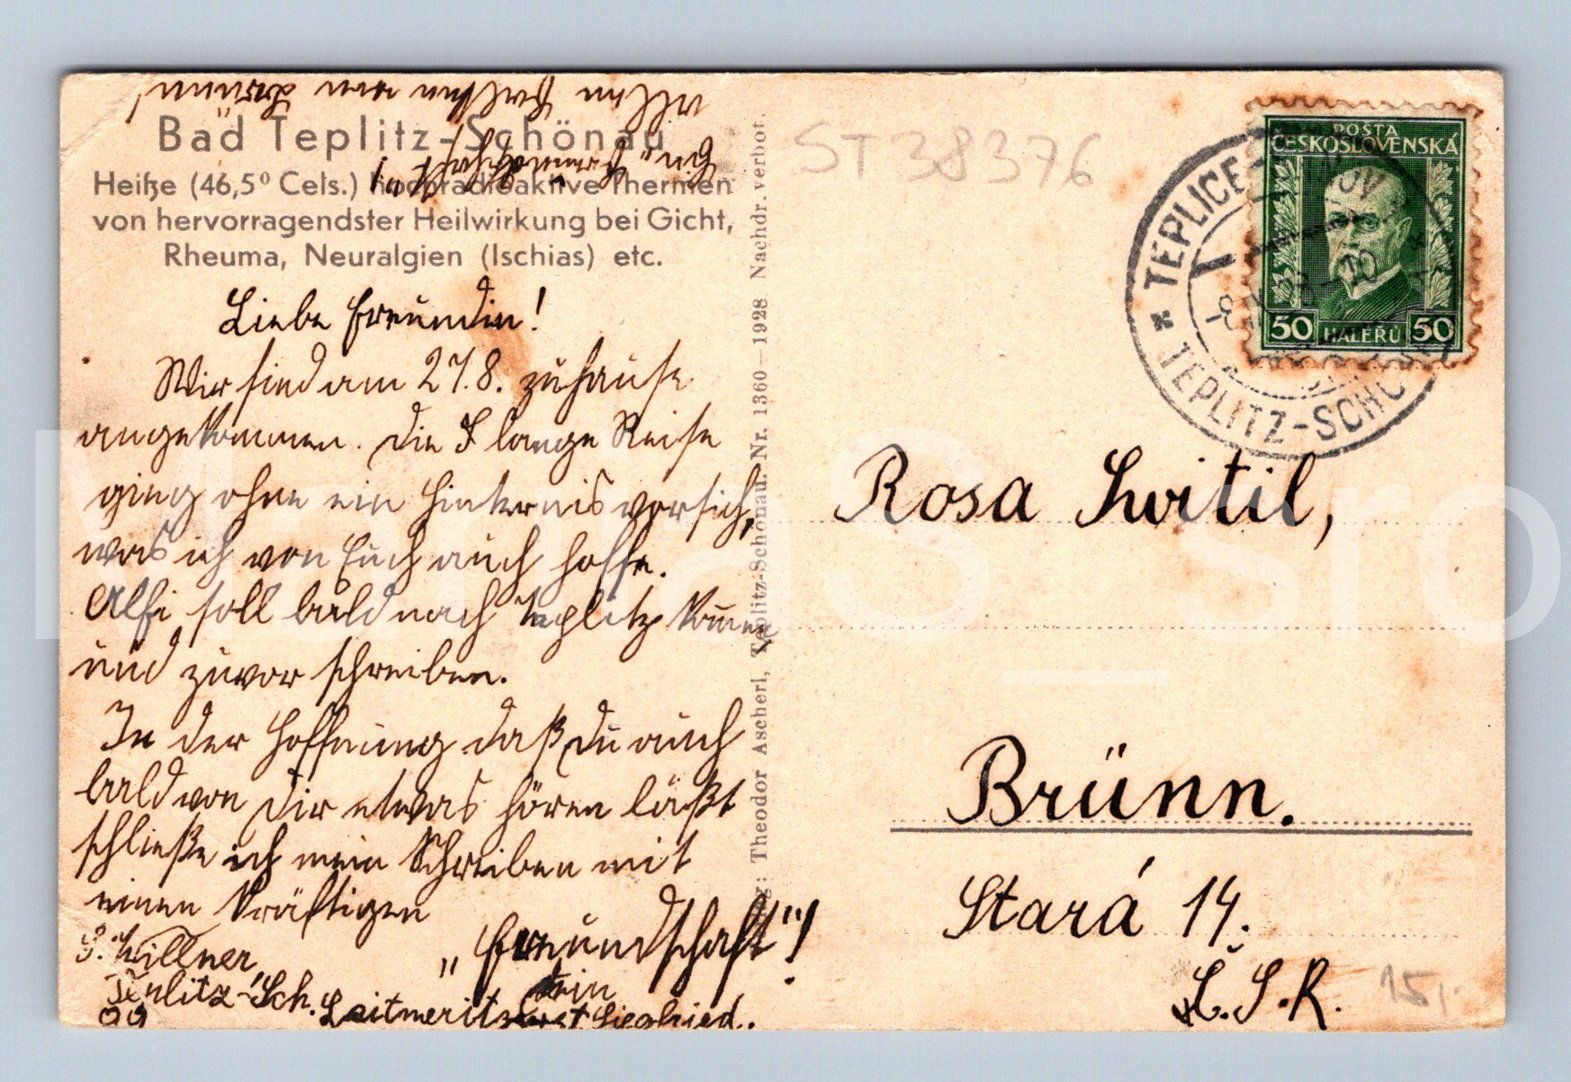 Bad Teplitz-Schönau
Heiße (46,5º Cels.) hochradioaktive Thermen
von hervorragendster Heilwirkung bei Gicht,
Rheuma, Neuralgien (Ischias) etc.
Liebe Freundin!
Wir sind am 27.8. zuhause
angekommen. Die lange Reise
ging ohne ein Hinternis vorsich,
was ich von Euch auch hoffe.
Alfi soll bald nach Teplitz kommen
und zuvor schreiben.
In der Hoffnung daß Du auch
bald von Dir etwas hören läßt
schließe ich mein Schreiben mit
einen kräftigen
„Freundschaft"!
Dein
Siegfried.
S. Willner
Teplitz-Sch. Leitmeritz
Verlag: Theodor Ascherl, Teplitz-Schönau. Nr. 1360 - 1928 Nachdr. verbot.
ST38376
POSTA
ČESKOSLOVENSKÁ
50 HALÉŘŮ 50
TEPLICE-
TEPLITZ-SCHÖ
Rosa Switil,
Brünn.
Stará 14.
Č.S.R.
15,-